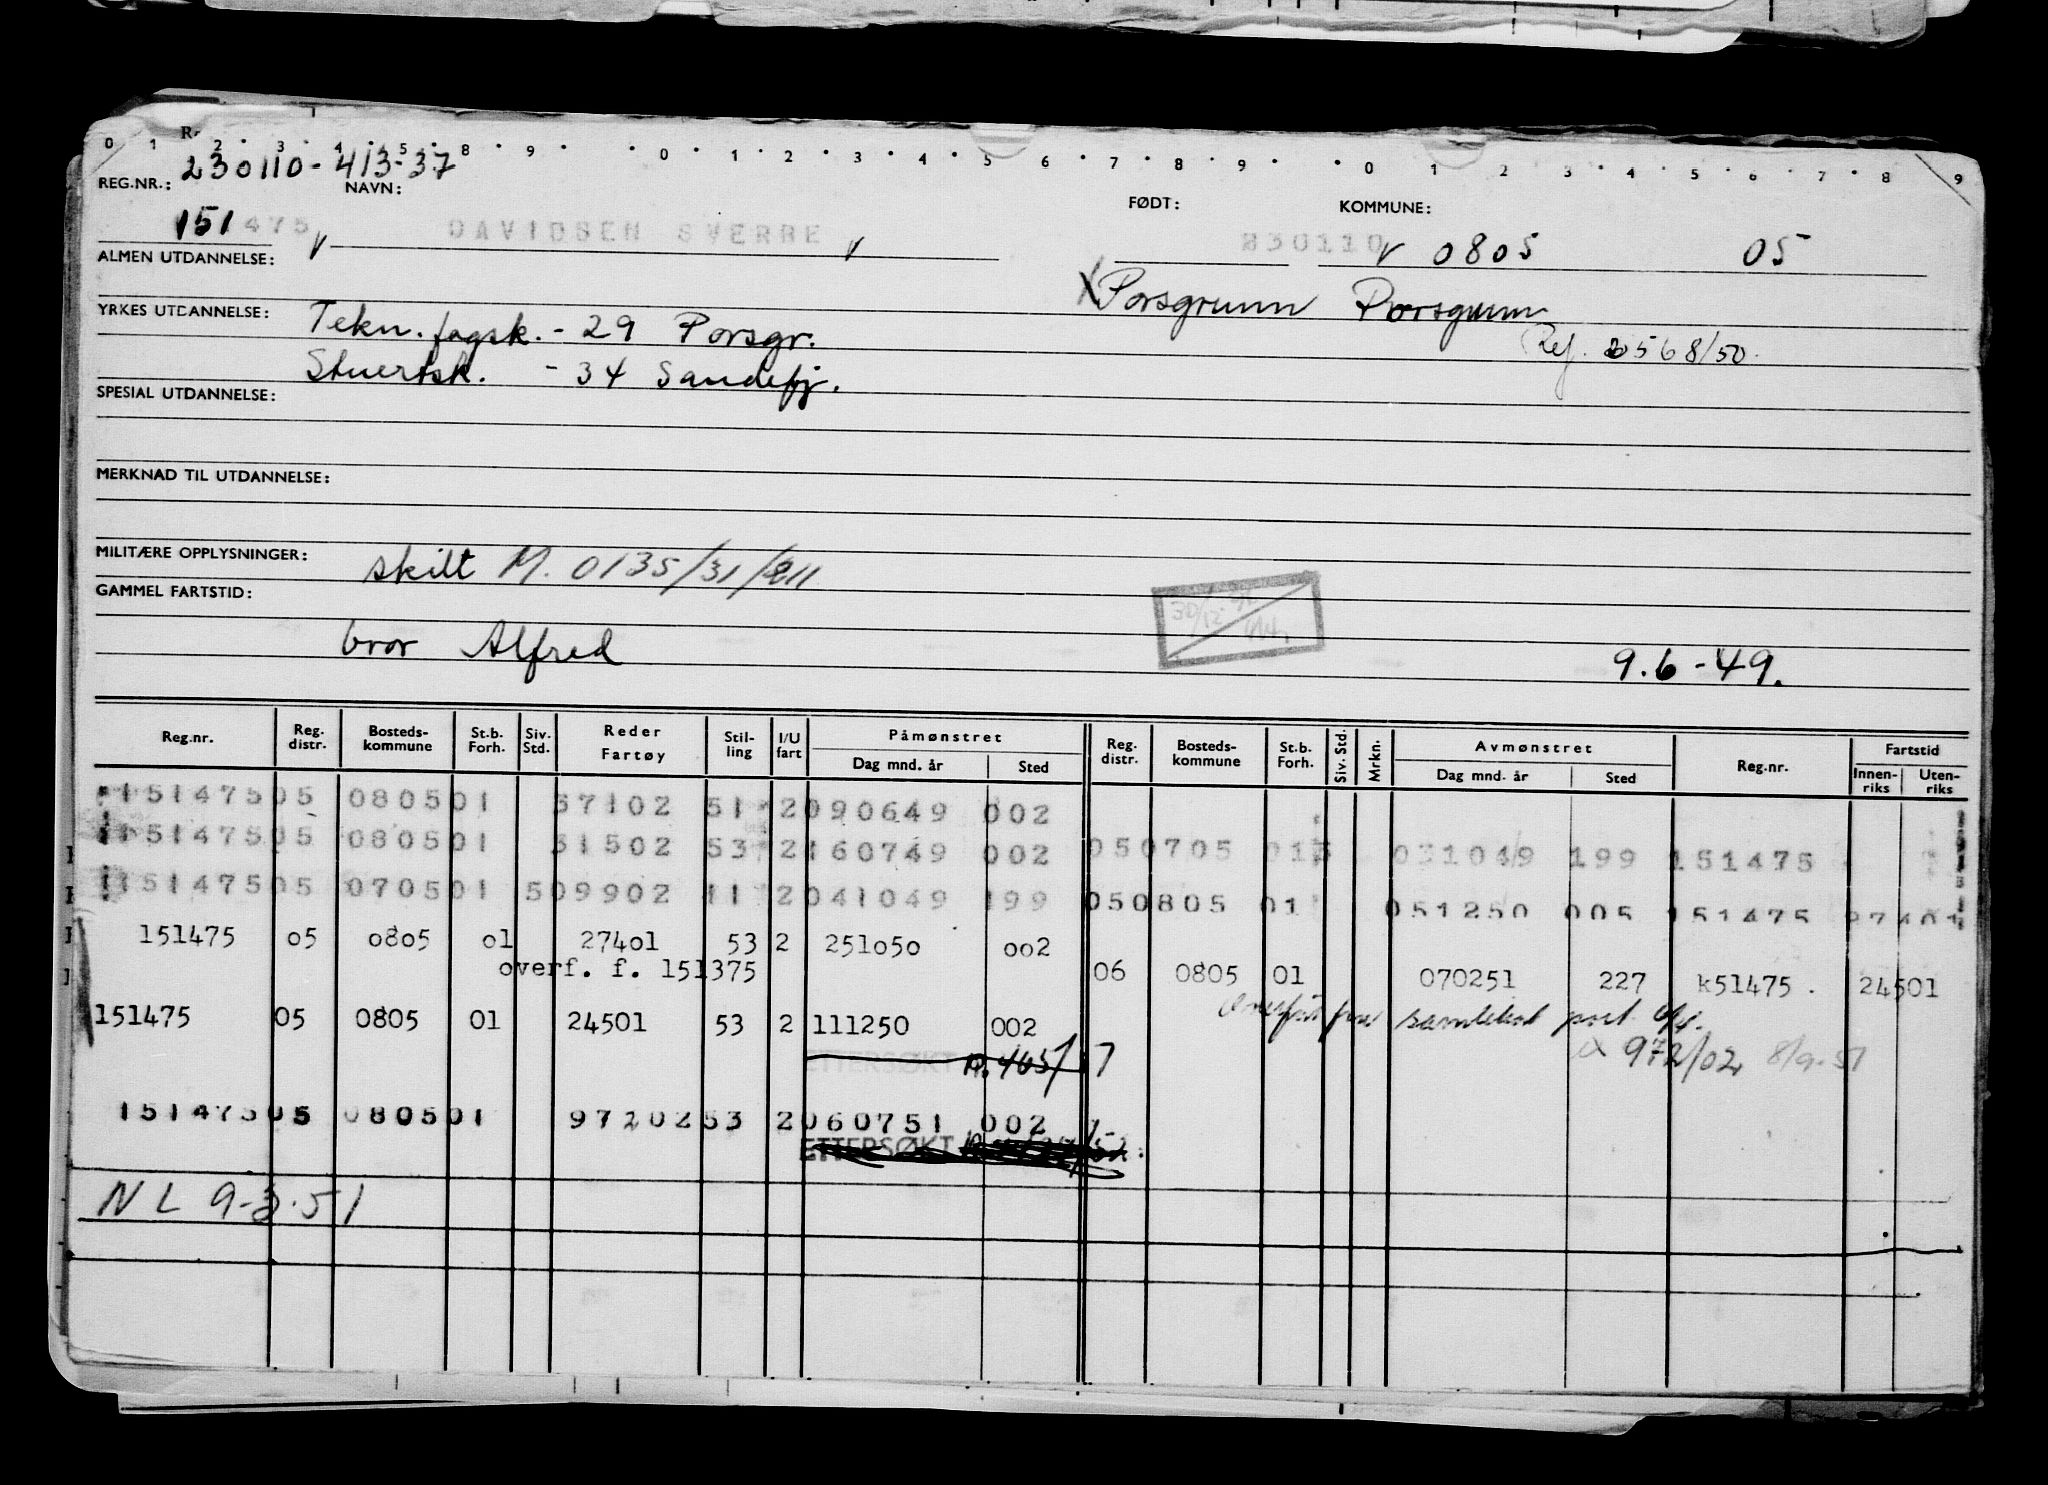 0 1 2 3 4 5 8 9 0 1 2 3 4 5 6 7 8 9 0 1 2 3 4 5 6 7 8 9
230110-413-37
REG.NR.: NAVN: FØDT: KOMMUNE:
151475 DAVIDSEN SVERRE 230110 0805 05
ALMEN UTDANNELSE:
Porsgrunn Porsgrunn
YRKES UTDANNELSE: Tekn. fagsk. - 29 Porsgr.
Ref. 2568/50.
Stuertsk. - 34 Sandefj.
SPESIAL UTDANNELSE:
MERKNAD TIL UTDANNELSE:
MILITÆRE OPPLYSNINGER: skilt M. 0135/31/211
GAMMEL FARTSTID:
30/12
bror Alfred
9.6-49.
Reg.nr. Reg. distr. Bosteds-kommune St.b. Forh. Siv. Std. Reder Fartøy Stil-ling I/U fart Påmønstret Dag mnd. år Sted Reg. distr. Bosteds-kommune St.b. Forh. Siv. Std. Mrkn. Avmønstret Dag mnd. år Sted Reg.nr. Fartstid Innen-riks Uten-riks
151475 05 0805 01 57102 51 2 090649 002
151475 05 0805 01 31502 53 2 160749 002 05 0705 01 031049 199 151475
151475 05 0705 01 509902 11 2 041049 199 05 0805 01 051250 005 151475 27401
151475 05 0805 01 27401 53 2 251050 002
overf. f. 151375 06 0805 01 070251 227 k51475 . 24501
151475 05 0805 01 24501 53 2 111250 002
ETTERSØKT
972/02, 8/9-51
151475 05 0805 01 97202 53 2 060751 002
ETTERSØKT
NL 9-3.51